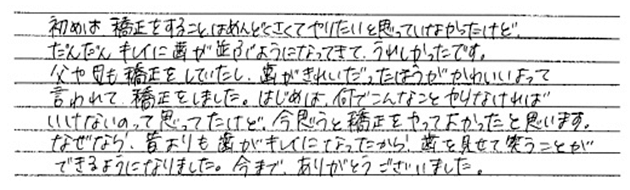 初めは矯正をすることはめんどくさくてやりたいと思っていなかったけど、
だんだんキレイに歯が並ぶようになってきて、うれしかったです。
父や母も矯正をしていたし、歯がきれいだったほうがかわいいよって
言われて矯正をしました。はじめは、何でこんなことやりなければ
いけないのって思ってたけど、今思うと矯正をやってよかったと思います。
なぜなら、昔よりも歯がキレイになったから！歯を見せて笑うことが
できるようになりました。今まで、ありがとうございました。